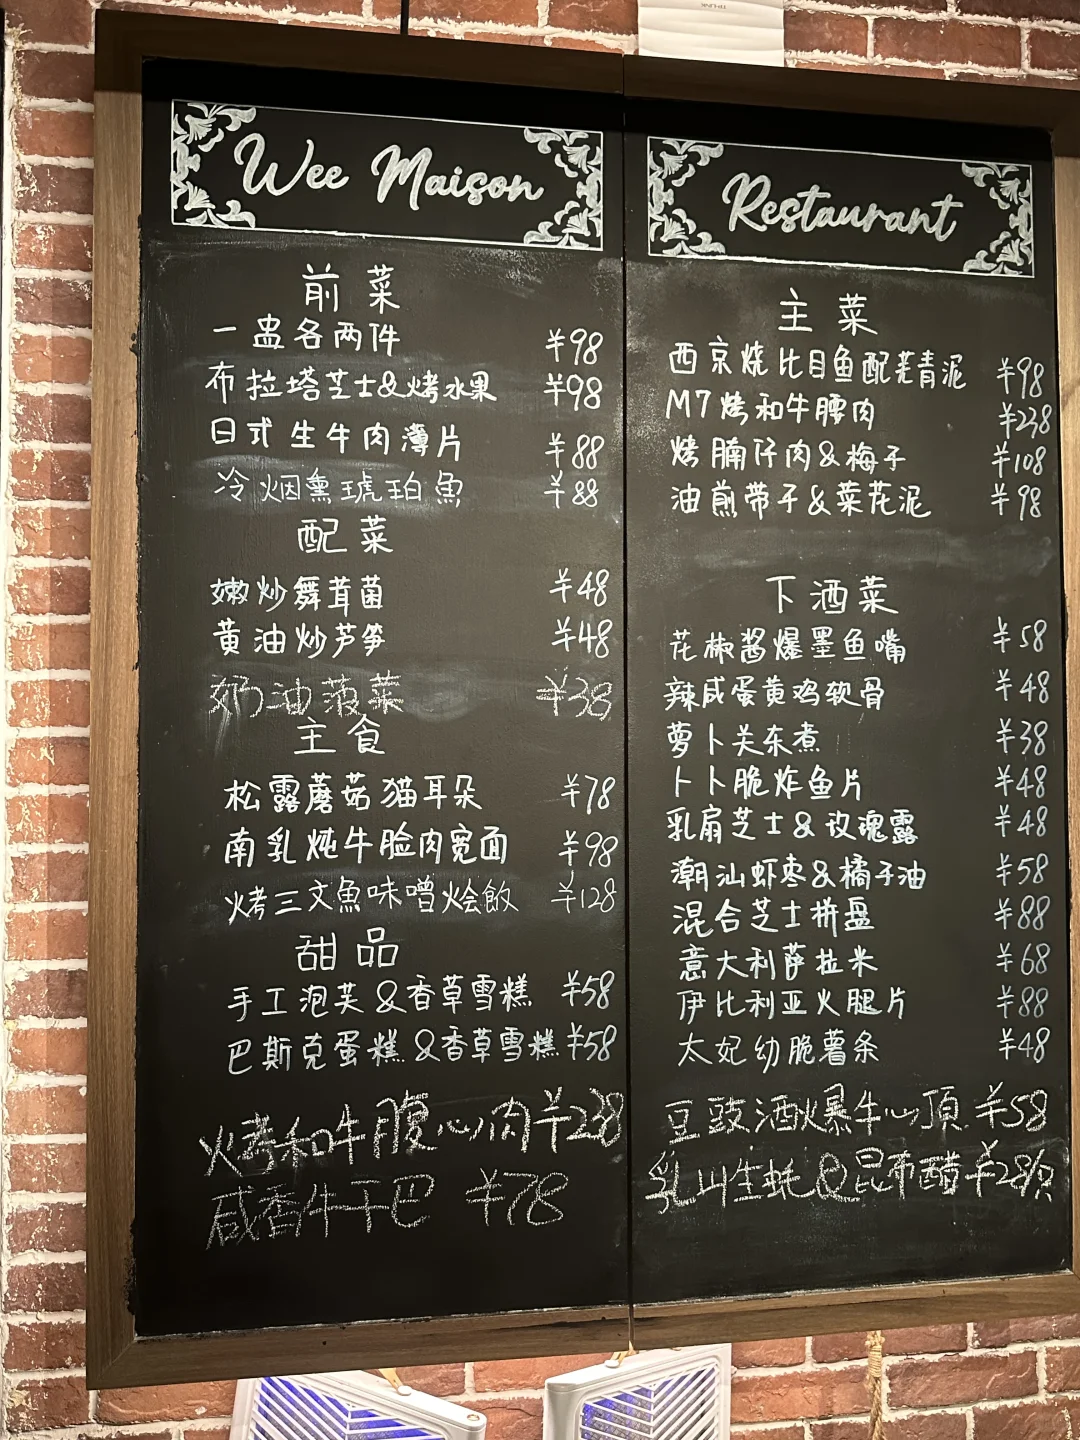 Wee Maison
前菜
一盅各两件 ¥98
布拉塔芝士&烤水果 ¥98
日式生牛肉薄片 ¥88
冷烟熏琥珀魚 ¥88
配菜
嫩炒舞茸菌 ¥48
黄油炒芦笋 ¥48
奶油菠菜 ¥38
主食
松露蘑菇猫耳朵 ¥78
南乳炖牛脸肉宽面 ¥98
烤三文魚味噌烩飯 ¥128
甜品
手工泡芙&香草雪糕 ¥58
巴斯克蛋糕&香草雪糕 ¥58
烤和牛腹心肉 ¥238
咸香牛干巴 ¥78
Restaurant
主菜
西京烧比目鱼配羌青泥 ¥98
M7烤和牛腰肉 ¥238
烤腩仔肉&梅子 ¥108
油煎带子&菜花泥 ¥98
下酒菜
花椒酱爆墨鱼嘴 ¥58
辣咸蛋黄鸡软骨 ¥48
萝卜关东煮 ¥38
卜卜脆炸鱼片 ¥48
乳扇芝士&玫瑰露 ¥48
潮汕虾枣&橘子油 ¥58
混合芝士拼盘 ¥88
意大利萨拉米 ¥68
伊比利亚火腿片 ¥88
太妃幼脆薯条 ¥48
豆豉酒爆牛心頂 ¥58
乳山生蚝&昆布醋 ¥28/只